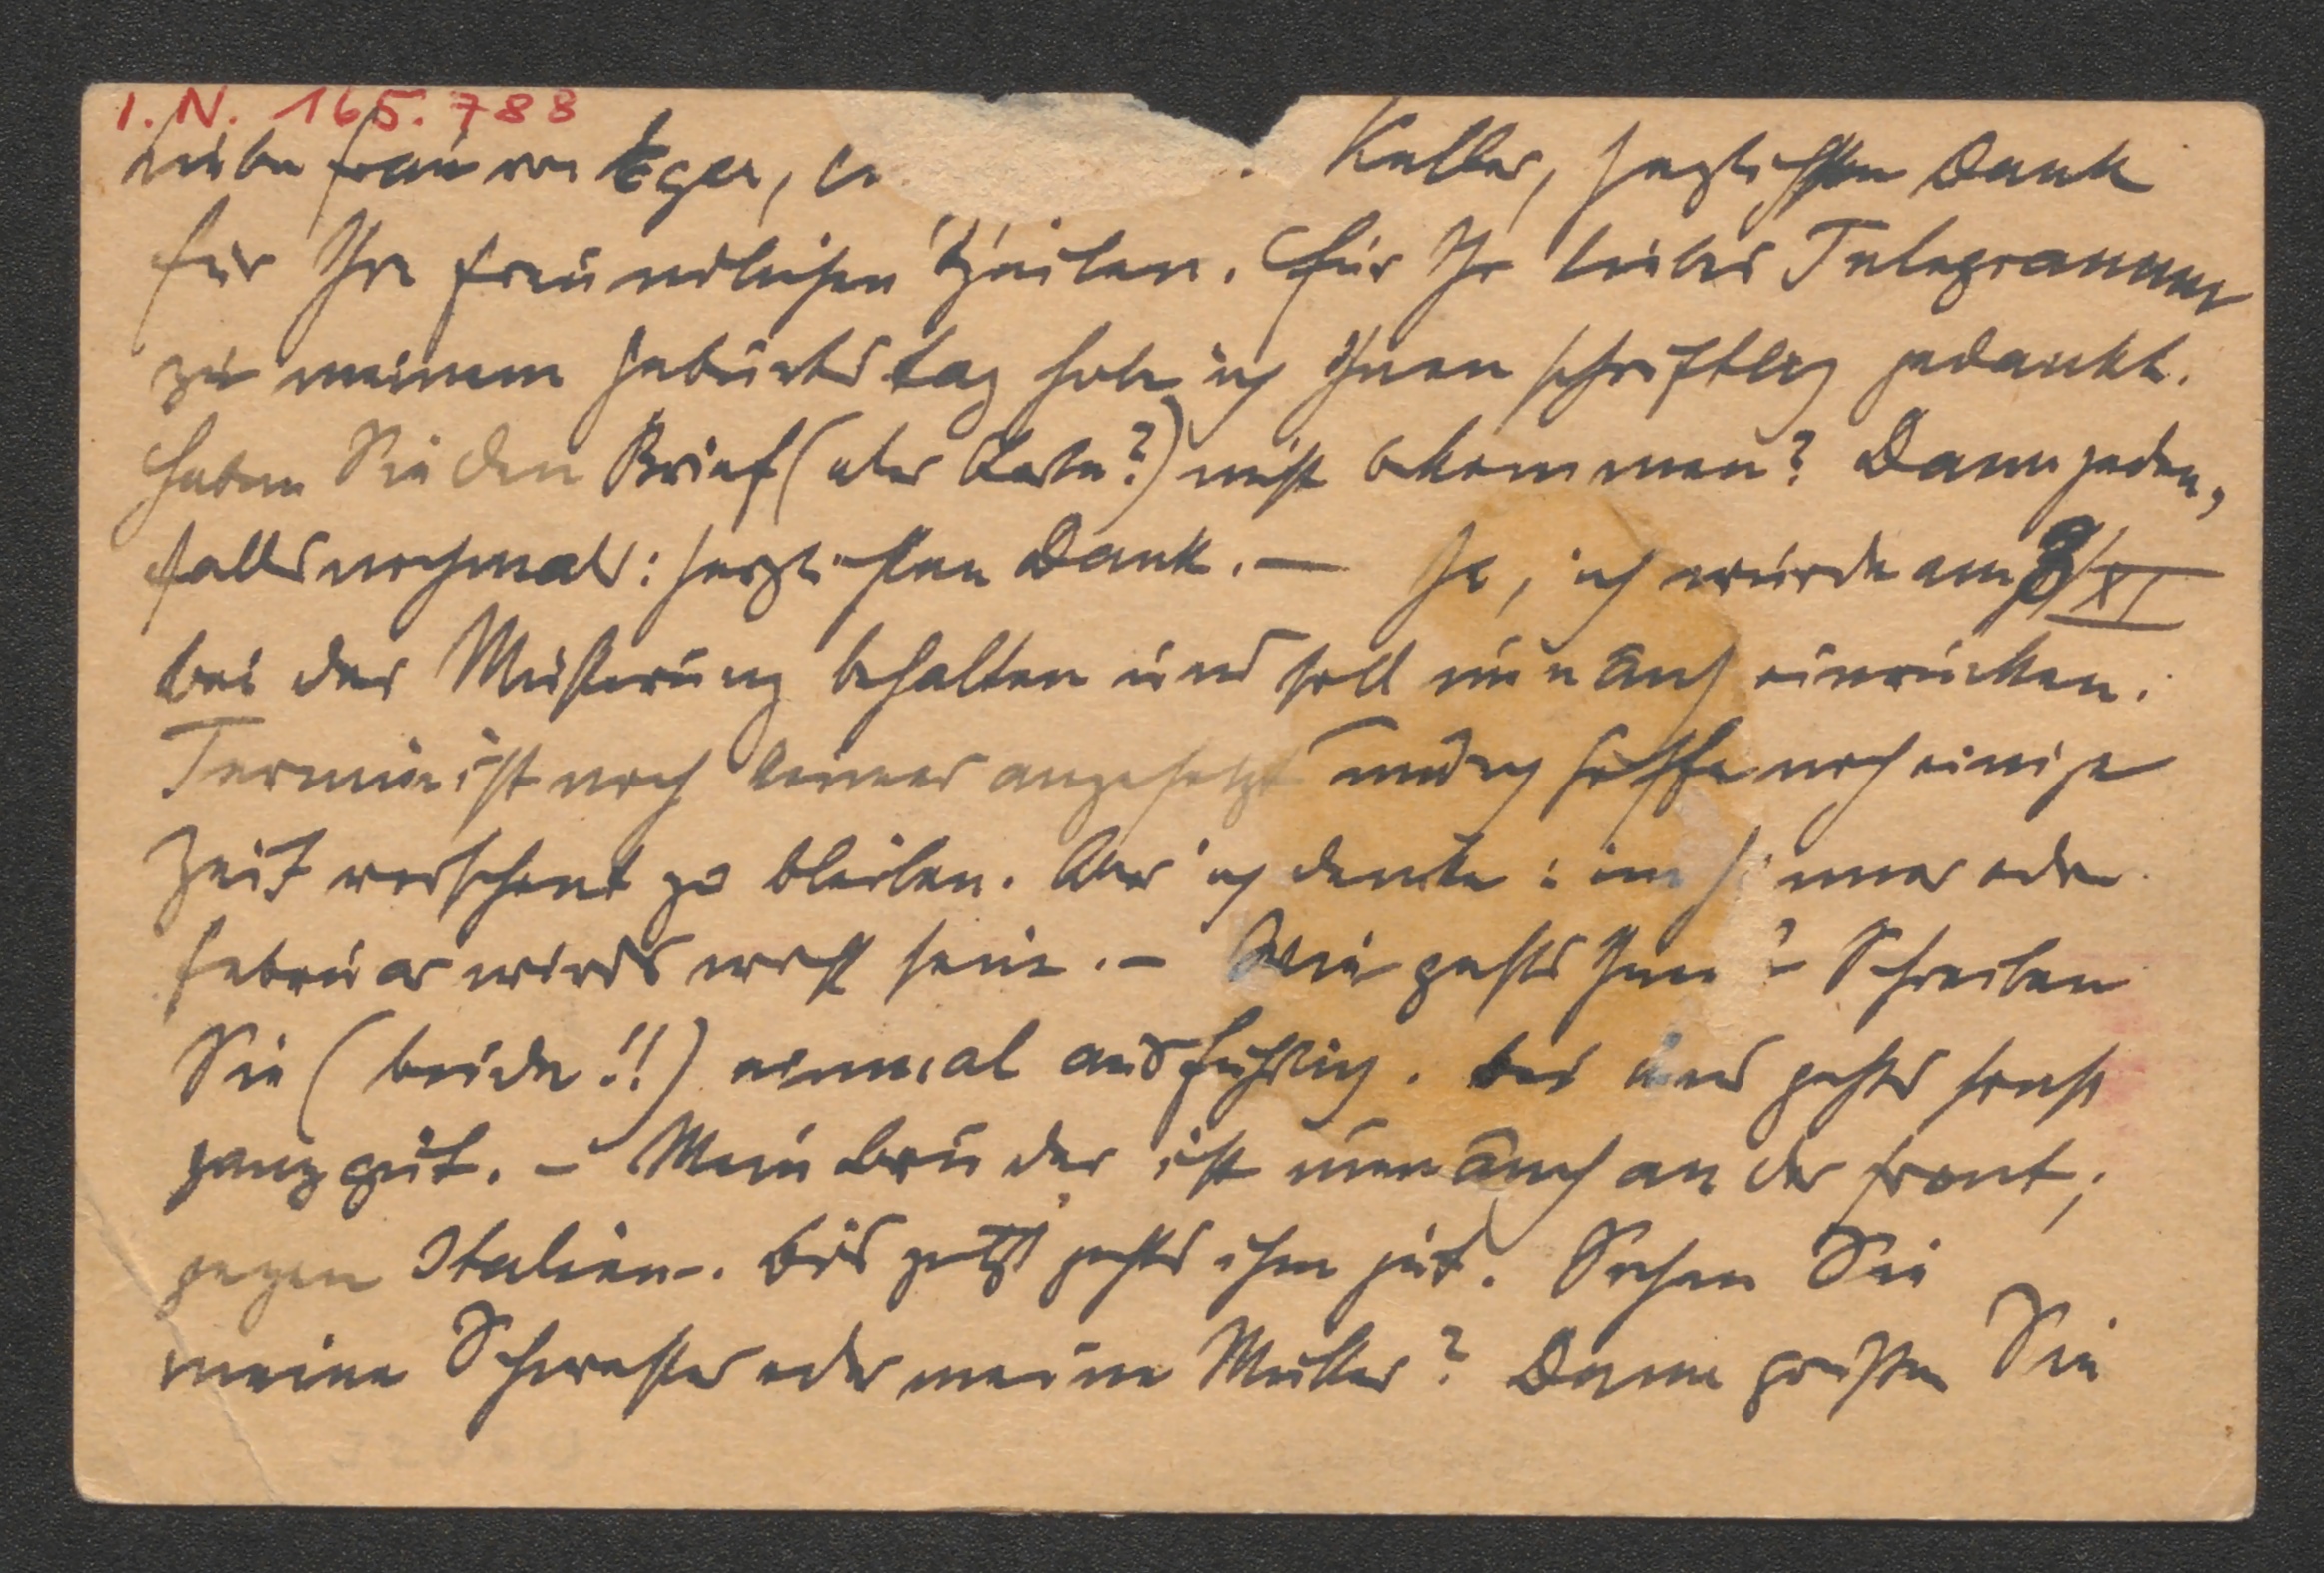 I.N. 165.788
Liebe Frau von Eger, li Keller, herzlichsten Dank
für Ihre freundlichen Zeilen. Für Ihr liebes Telegramm
zu meinem Geburtstag habe ich Ihnen schriftlich gedankt.
Haben Sie den Brief (oder Karte?) nicht bekommen? Dann jeden,
falls nochmals: herzlichsten Dank. — Ja, ich wurde am 8/XI
bei der Musterung behalten und soll nun auch einrücken.
Termin ist noch keiner angesetzt und ich hoffe noch einige
Zeit verschont zu bleiben. Aber ich denke: im oder
Februar wirds wohl sein. — Wie gehts Ihnen? – Schreiben
Sie (beide!!) einmal ausführlich. Bei uns gehts sonst
ganz gut. – Mein Bruder ist nun auch an der Front;
gegen Italien. Bis jetzt gehts ihm gut. Sehen Sie
meine Schwester oder meine Mutter? Dann grüßen Sie